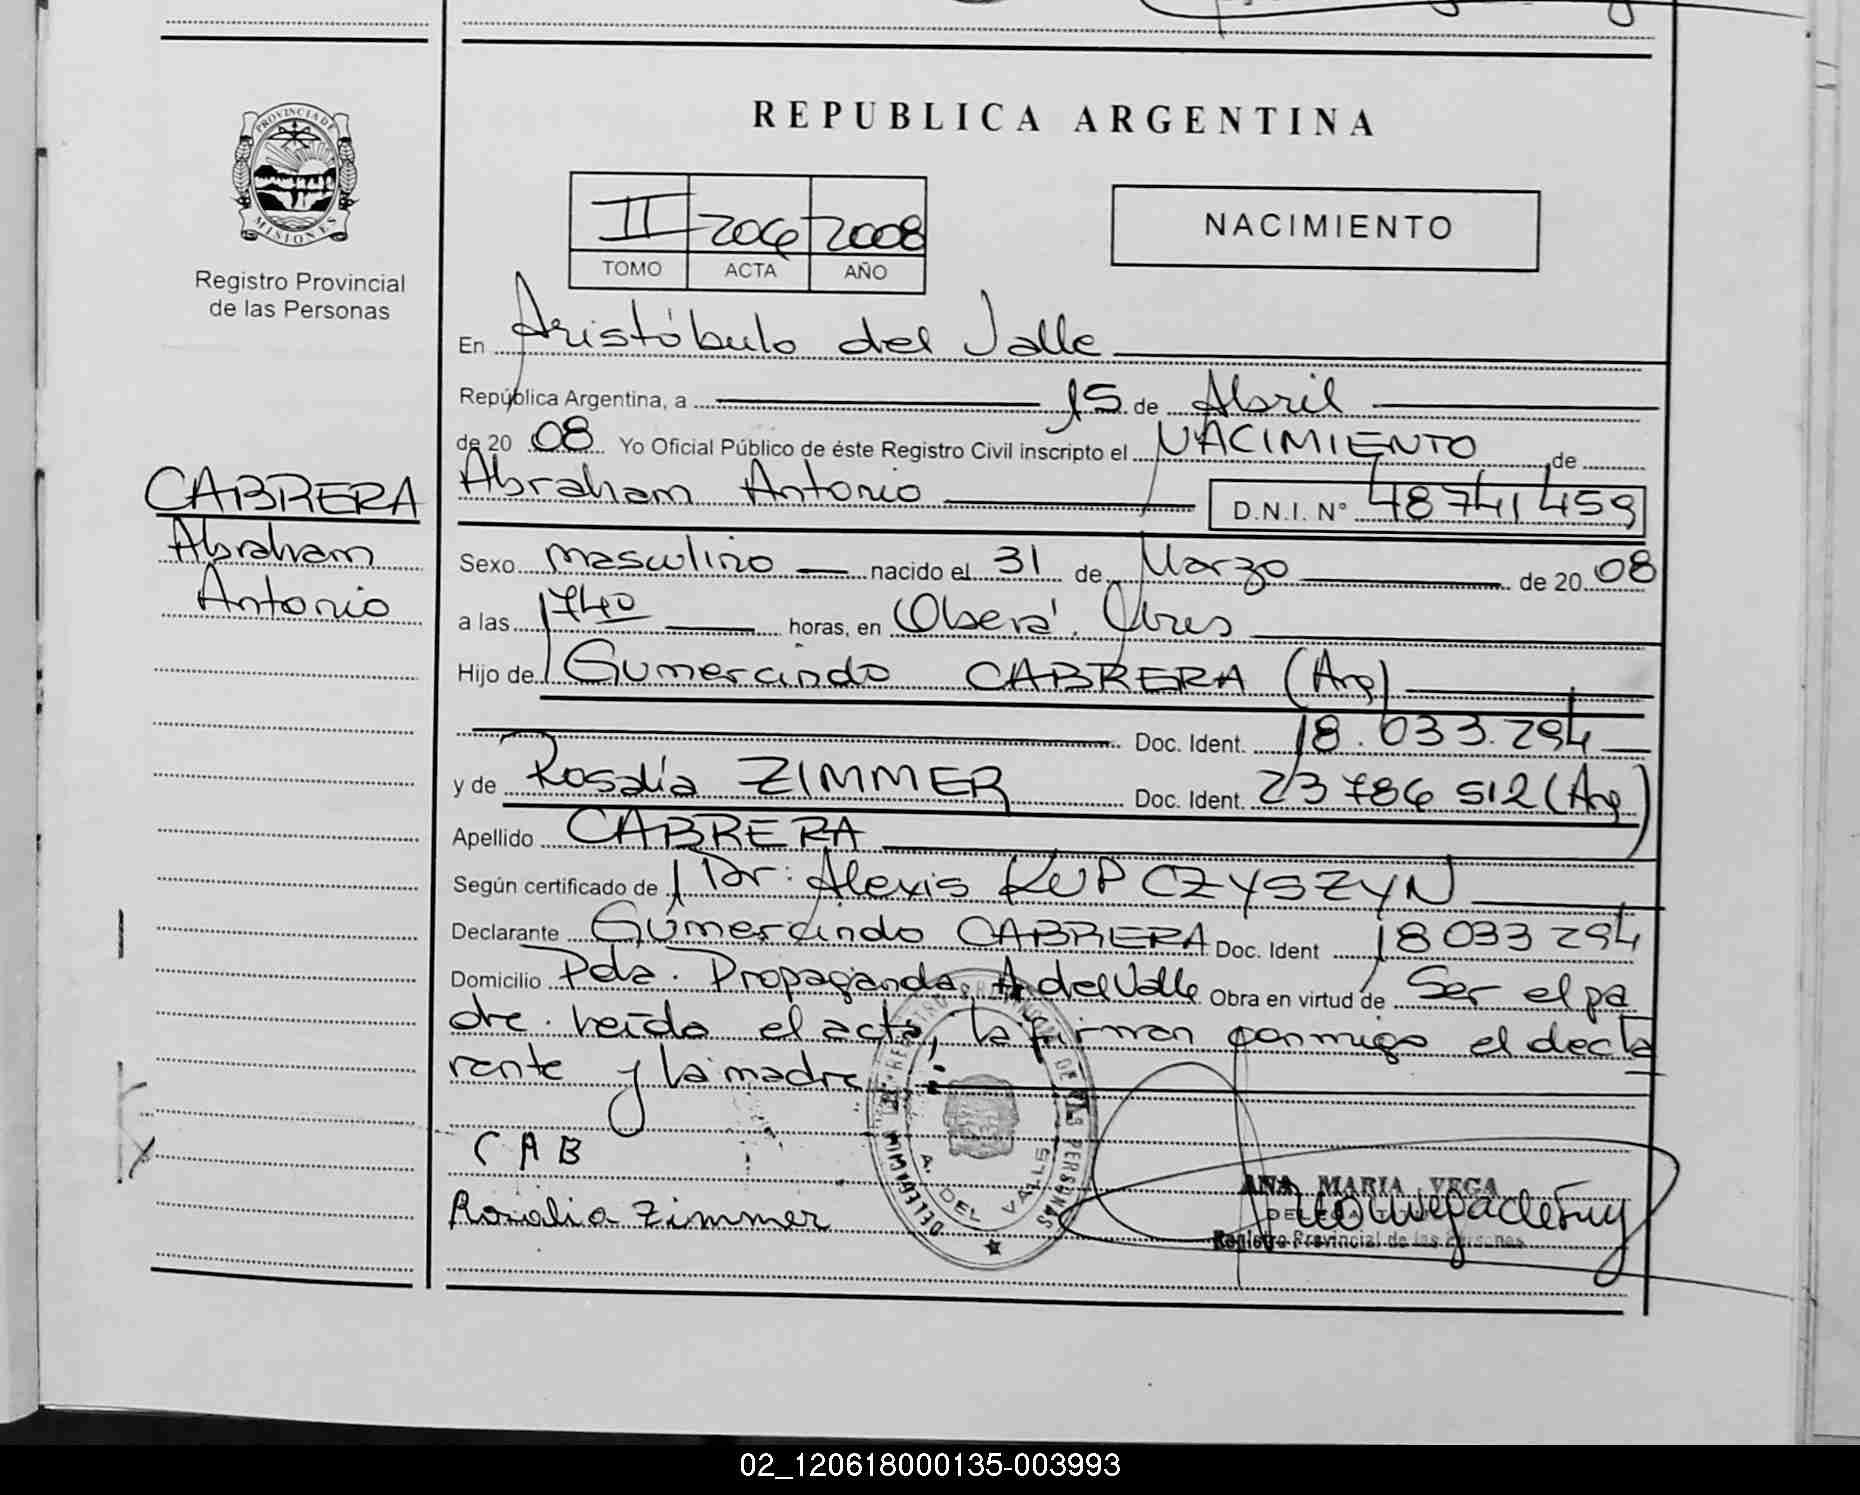 REPUBLICA ARGENTINA
PROVINCIA DE
MISIONES
Registro Provincial
de las Personas
II 206 2008
TOMO ACTA AÑO
NACIMIENTO
En Aristóbulo del Valle
República Argentina, a 15 de Abril
de 20 08 Yo Oficial Público de éste Registro Civil inscripto el NACIMIENTO de
Abraham Antonio D.N.I. N° 48741459
CABRERA
Abraham
Antonio
Sexo masculino nacido el 31 de Marzo de 20 08
a las 1740 horas, en Oberá,
Hijo de Gumercindo CABRERA (Arg)
Doc. Ident. 18.033.294
y de Rosalía ZIMMER Doc. Ident. 23786512 (Arg)
Apellido CABRERA
Según certificado de Dr: Alexis KUPCZYSZYN
Declarante Gumercindo CABRERA Doc. Ident 18033294
Domicilio Pda. Propaganda, A del Valle Obra en virtud de Ser el pa
dre. Leída el acta, la firman conmigo el decla
rante y la madre
CAB
Rosalia Zimmer
REGISTRO PROVINCIAL DE LAS PERSONAS
A. DEL VALLE
ANA MARIA VEGA
Registro Provincial de las Personas
02_120618000135-003993